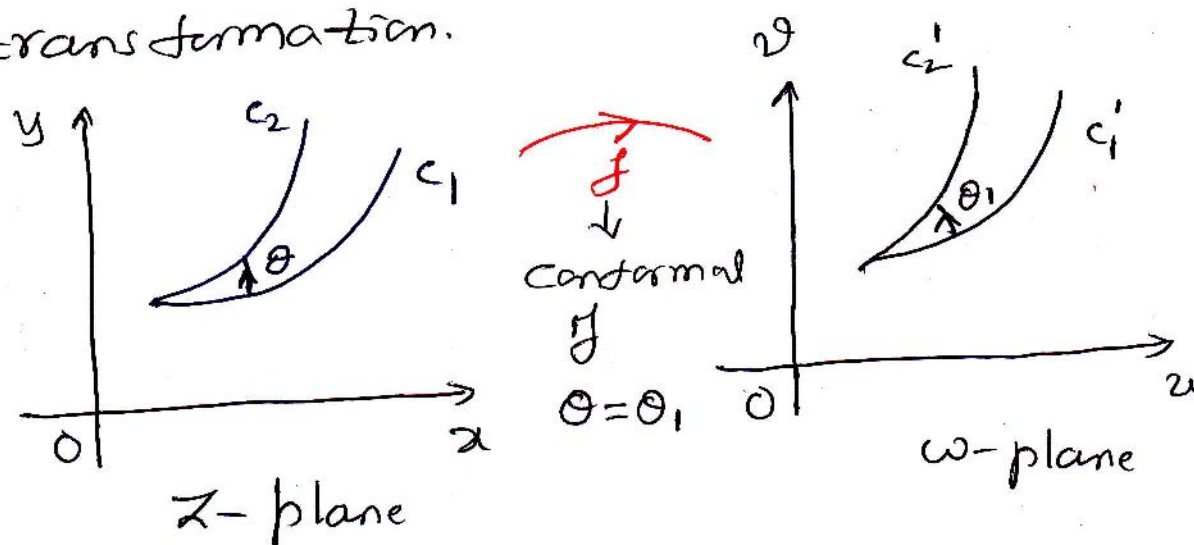 transformation.
y
c₂
c₁
θ
0
x
Z- plane
f
↓
conformal
if
θ=θ₁
v
c₂'
c₁'
θ₁
0
u
w-plane